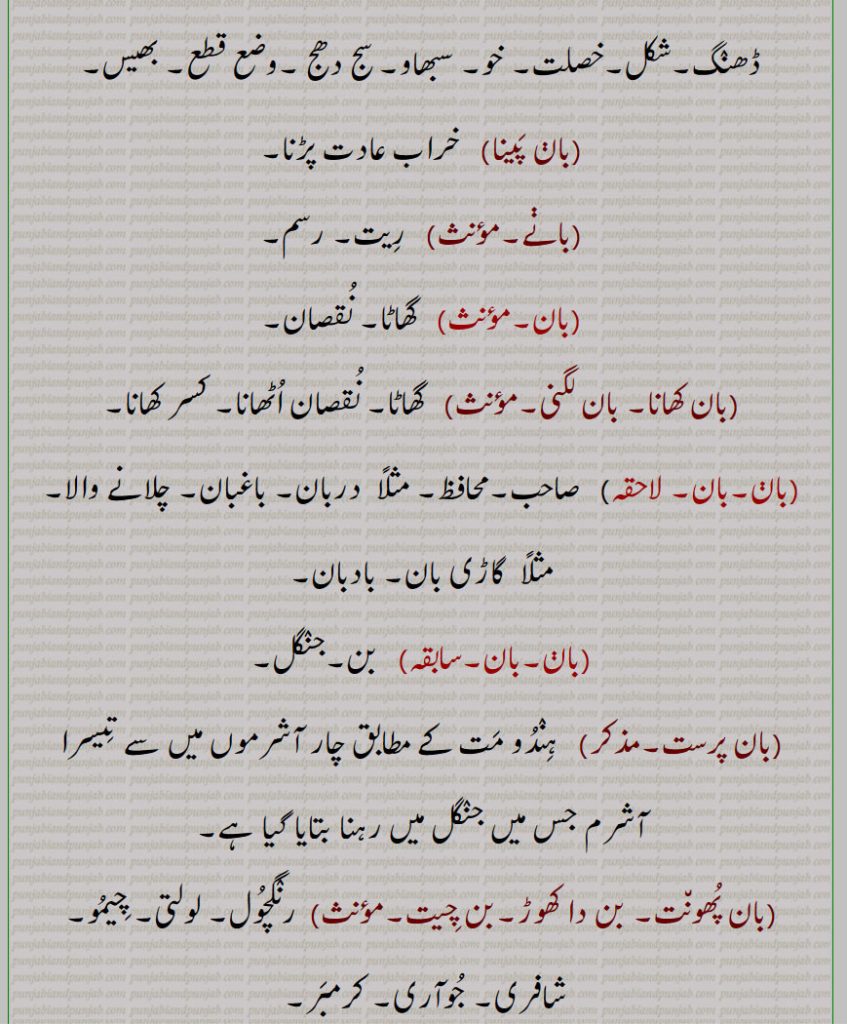 ڈھنگ۔شکل۔خصلت۔ خو۔ سبھاو۔ سج دھج ۔وضع قطع۔ بھیس۔
(باݨ پَینا) خراب عادت پڑنا۔
(بانے۔مؤنث) رِیت۔ رسم۔
(بان۔مؤنث) گھاٹا۔ نُقصان۔
(بان کھانا۔ بان لگنی۔مؤنث) گھاٹا۔ نُقصان اُٹھانا۔ کسر کھانا۔
(باݨ۔بان۔ لاحقہ) صاحب۔محافظ۔ مثلاً دربان۔ باغبان۔ چلانے والا۔
مثلاً گاڑی بان۔ بادبان۔
(باݨ۔بان۔سابقہ) بن۔جنگل۔
(بان پرست۔مذکر) ہِنْدُو مَت کے مطابق چار آشرموں میں سے تِیسرا
آشرم جس میں جنگل میں رہنا بتایا گیا ہے۔
(بان پُھونّت۔ بن دا کھوڑ۔بن چِیت۔مؤنث) رنگچُول۔ لولتی۔ چِیمُو۔
شافری۔ جُوآری۔ کرمبَر۔
punjabiandpunjab.com